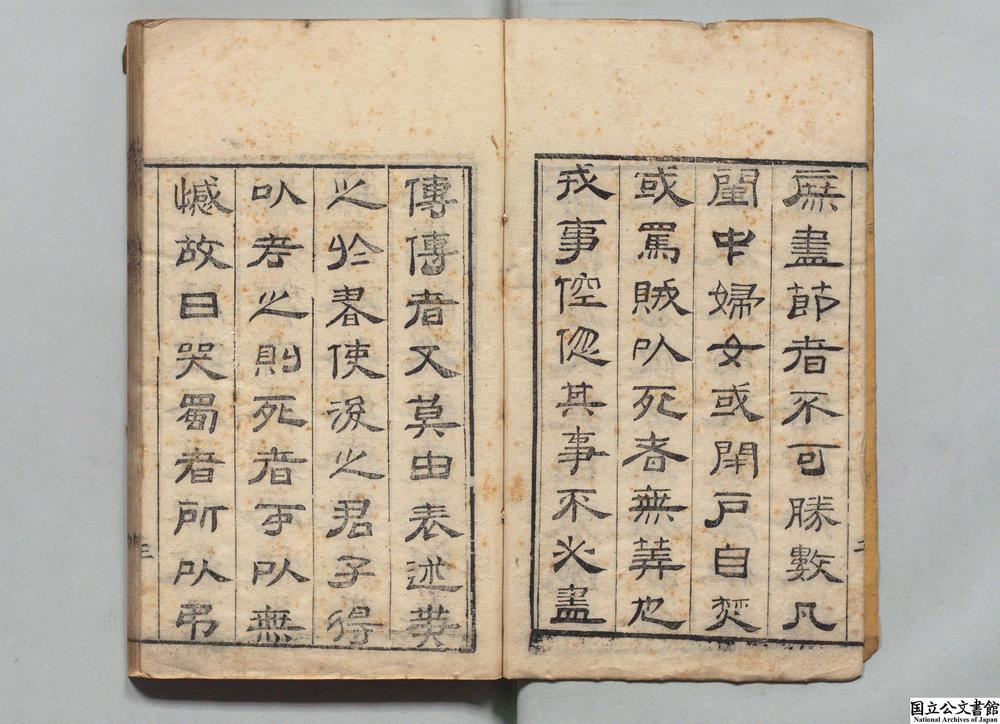 庶盡節者不可勝數凡
閨中婦女或閉戶自焚
或罵賊以死者無筭也
戎事倥傯其事不必盡
傳傳者又莫由表述
之於書使後之君子得
以考之則死者可以無
憾故曰哭蜀者所以弔
三
国立公文書館
National Archives of Japan